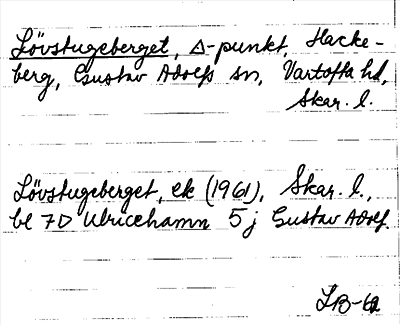 Lövstugeberget, Δ-punkt, Hacke-
berg, Gustav Adolfs sn, Vartofta hd,
Skar. l.
Lövstugeberget, ek (1961), Skar. l.,
bl 7D Ulricehamn 5j Gustav Adolf.
LB-62